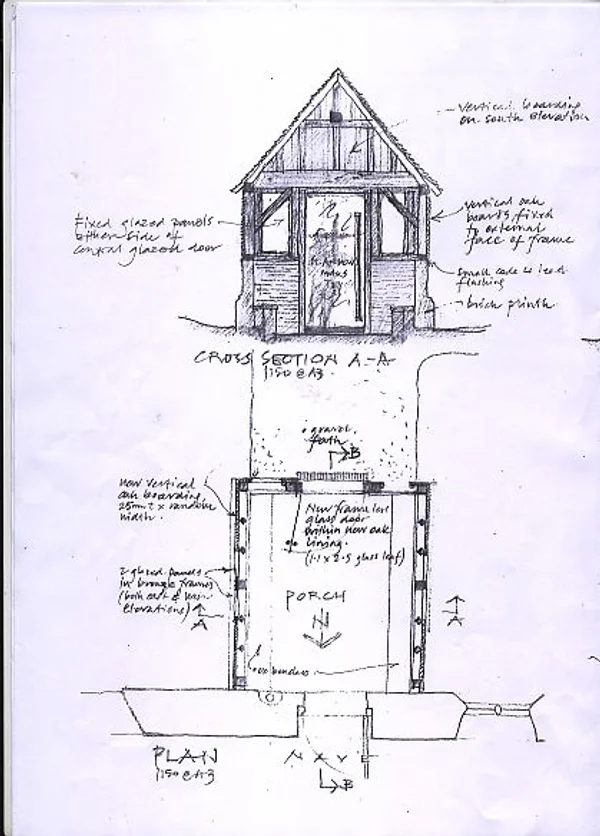 vertical boarding
on south elevation
Fixed glazed panels
either side of
central glazed door
vertical oak
boards fixed
to external
face of frame
Small code 4 lead
flashing
brick plinth
CROSS SECTION A-A
1:50 @ A3
gravel
path
B
New vertical
oak boarding
25mm t x random
width.
New frameless
glass door
within new oak
lining.
(1.1 x 2.5 glass leaf)
2 glazed panels
in bronze frames
(both east &
elevations)
A
A
PORCH
N
PLAN
1:50 @ A3
NAVE
B